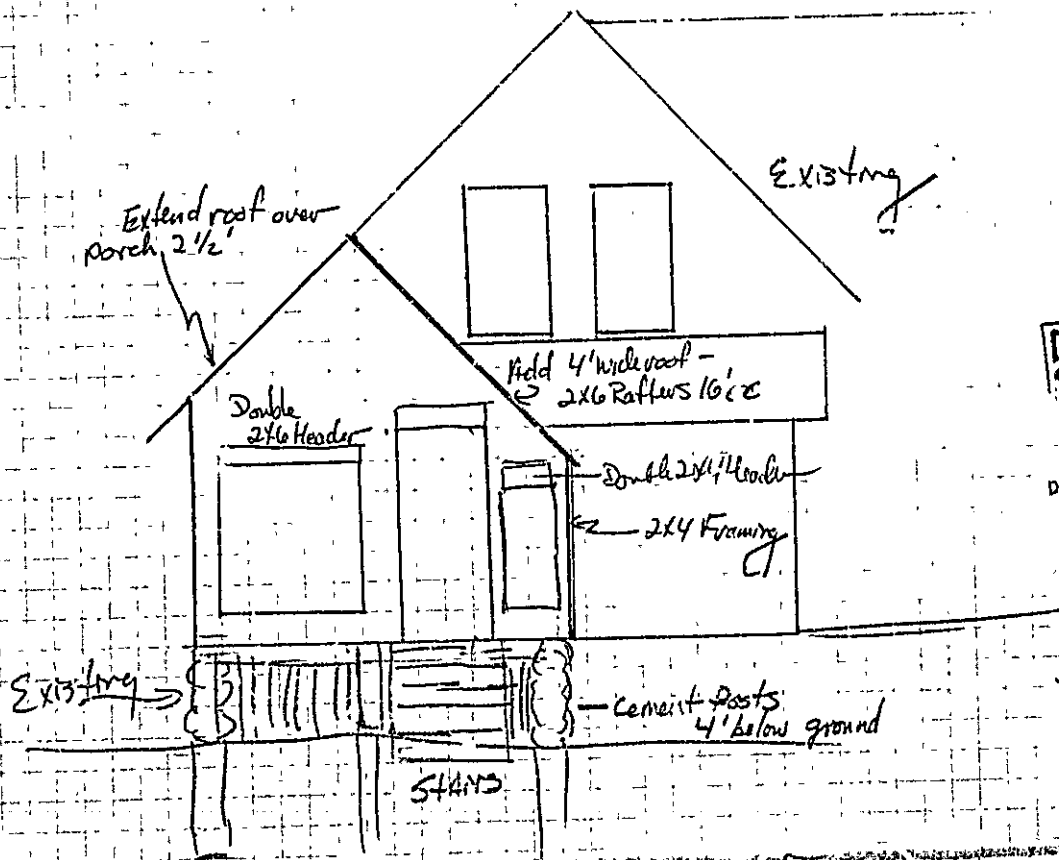 Existing
Extend roof over
porch 2 1/2'
Add 4' wide roof -
2x6 Rafters 16"
Double
2x6 Header
Double
2x4 Framing
Existing
Cement Posts
4' below ground
Stairs